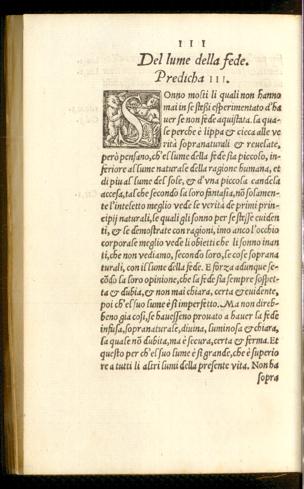 III
Del lume della fede.
Predicha III.
SOnno molti li quali non hanno
mai in se stessi esperimentato d'ha
uer se non fede aquistata. la qua-
le perche è lippa & cieca alle ve
rità sopranaturali & reuelate,
però pensano, ch'el lume della fede sia piccolo, in-
feriore al lume naturale della ragione humana, et
di piu al lume del sole, & d'vna piccola candela
accesa, tal che secondo la loro fantasia, nõ solamen-
te l'inteletto meglio vede le verità de primi prin-
cipij naturali, se quali gli sonno per se stesse euiden
ti, & le demostrate con ragioni, imo anco l'occhio
corporale meglio vede li obietti che li sonno inan
ti, che non vediamo, secondo loro, le cose soprana
turali, con il lume della fede. E forza adunque se-
cõdo la loro opinione, che la fede sia sempre sospet-
ta & dubia, & non mai chiara, certa & euidente,
poi ch'el suo lume è sì imperfetto. Ma non direb-
beno gia così, se hauesseno prouato a hauer la fede
infusa, sopranaturale, diuina, luminosa & chiara,
la quale nõ dubita, ma è secura, certa & ferma. Et
questo per ch'el suo lume è sì grande, che è superio
re a tutti li altri lumi della presente vita. Non ha
sopra